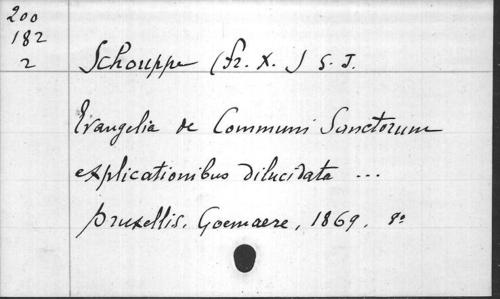 200
182
2
Schouppe (Fr. X.) S. J.
Evangelia de Communi Sanctorum
explicationibus dilucidata ...
Bruxellis, Goemaere, 1869. 8º